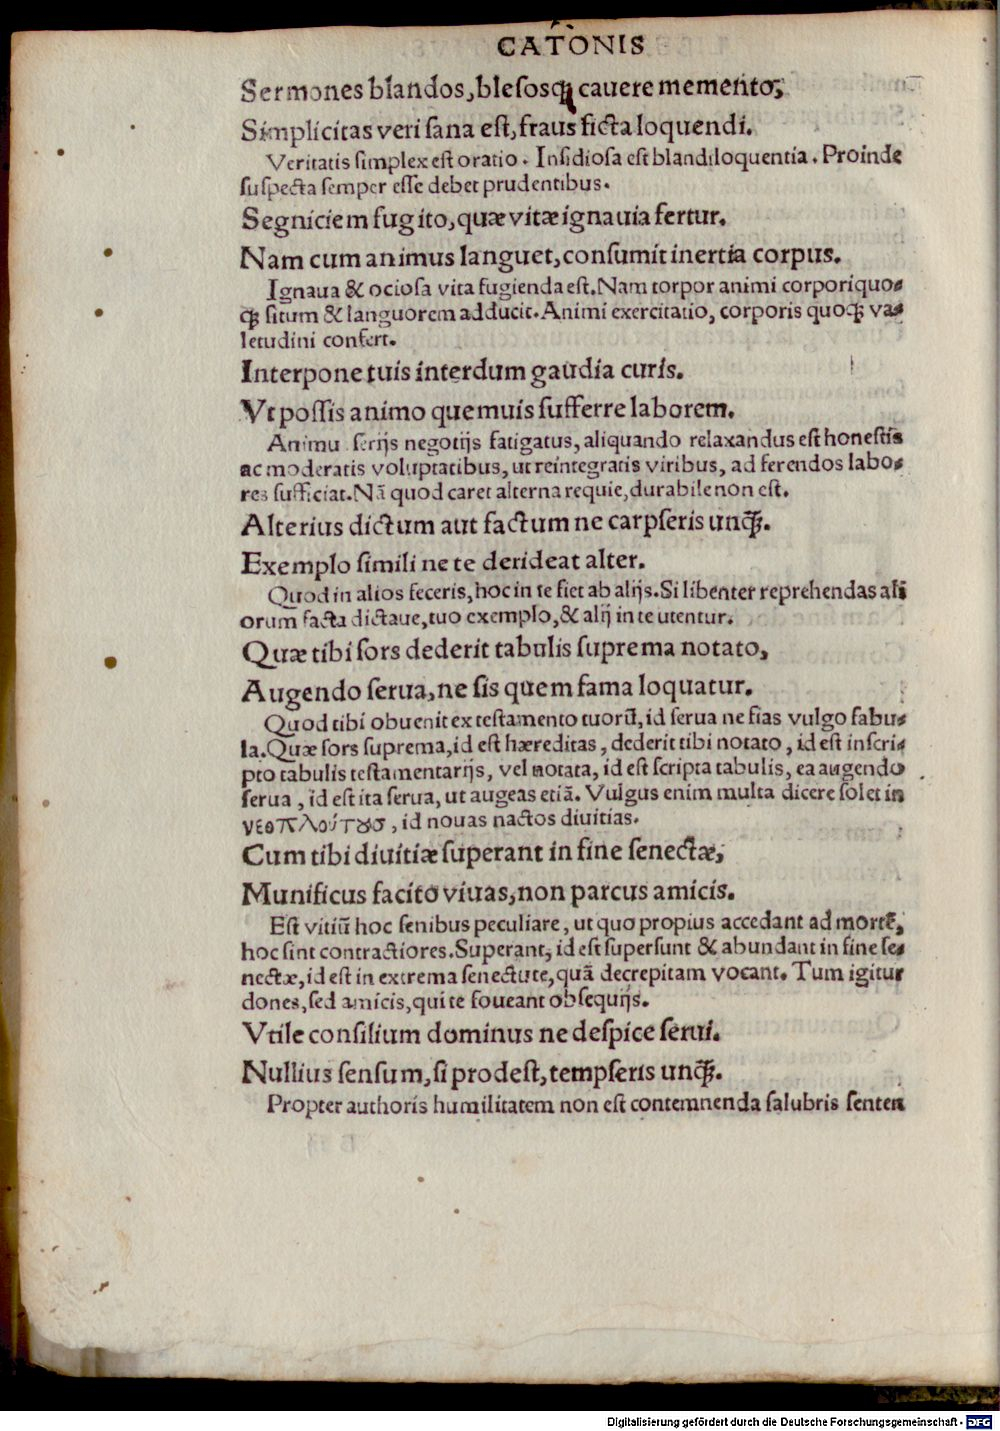 CATONIS
Sermones blandos, blesosqꝫ cauere memento,
Simplicitas veri sana est, fraus ficta loquendi.
Veritatis simplex est oratio. Insidiosa est blandiloquentia. Proinde
suspecta semper esse debet prudentibus.
Segniciem fugito, quæ vitæ ignauia fertur.
Nam cum animus languet, consumit inertia corpus.
Ignaua & ociosa vita fugienda est. Nam torpor animi corporiquo-
qꝫ situm & languorem adducit. Animi exercitatio, corporis quoqꝫ va-
letudini confert.
Interpone tuis interdum gaudia curis.
Vt possis animo quemuis sufferre laborem.
Animu serijs negotijs fatigatus, aliquando relaxandus est honestis
ac moderatis voluptatibus, ut reintegratis viribus, ad ferendos labo-
res sufficiat. Nā quod caret alterna requie, durabile non est.
Alterius dictum aut factum ne carpseris unqꝫ̄.
Exemplo simili ne te derideat alter.
Quod in alios feceris, hoc in te fiet ab alijs. Si libenter reprehendas ali
orum facta dictaue, tuo exemplo, & alij in te utentur.
Quæ tibi sors dederit tabulis suprema notato,
Augendo serua, ne sis quem fama loquatur.
Quod tibi obuenit ex testamento tuorū, id serua ne fias vulgo fabu-
la. Quæ sors suprema, id est hæreditas, dederit tibi notato, id est inscri-
pto tabulis testamentarijs, vel notata, id est scripta tabulis, ea augendo
serua, id est ita serua, ut augeas etiā. Vulgus enim multa dicere solet in
νεοπλούτȣσ, id nouas nactos diuitias.
Cum tibi diuitiæ superant in fine senectæ,
Munificus facito viuas, non parcus amicis.
Est vitiū hoc senibus peculiare, ut quo propius accedant ad mortē,
hoc sint contractiores. Superant, id est supersunt & abundant in fine se-
nectæ, id est in extrema senectute, quā decrepitam vocant. Tum igitur
dones, sed amicis, qui te foueant obsequijs.
Vtile consilium dominus ne despice serui.
Nullius sensum, si prodest, tempseris unqꝫ̄.
Propter authoris humilitatem non est contemnenda salubris senten
Digitalisierung gefördert durch die Deutsche Forschungsgemeinschaft - DFG